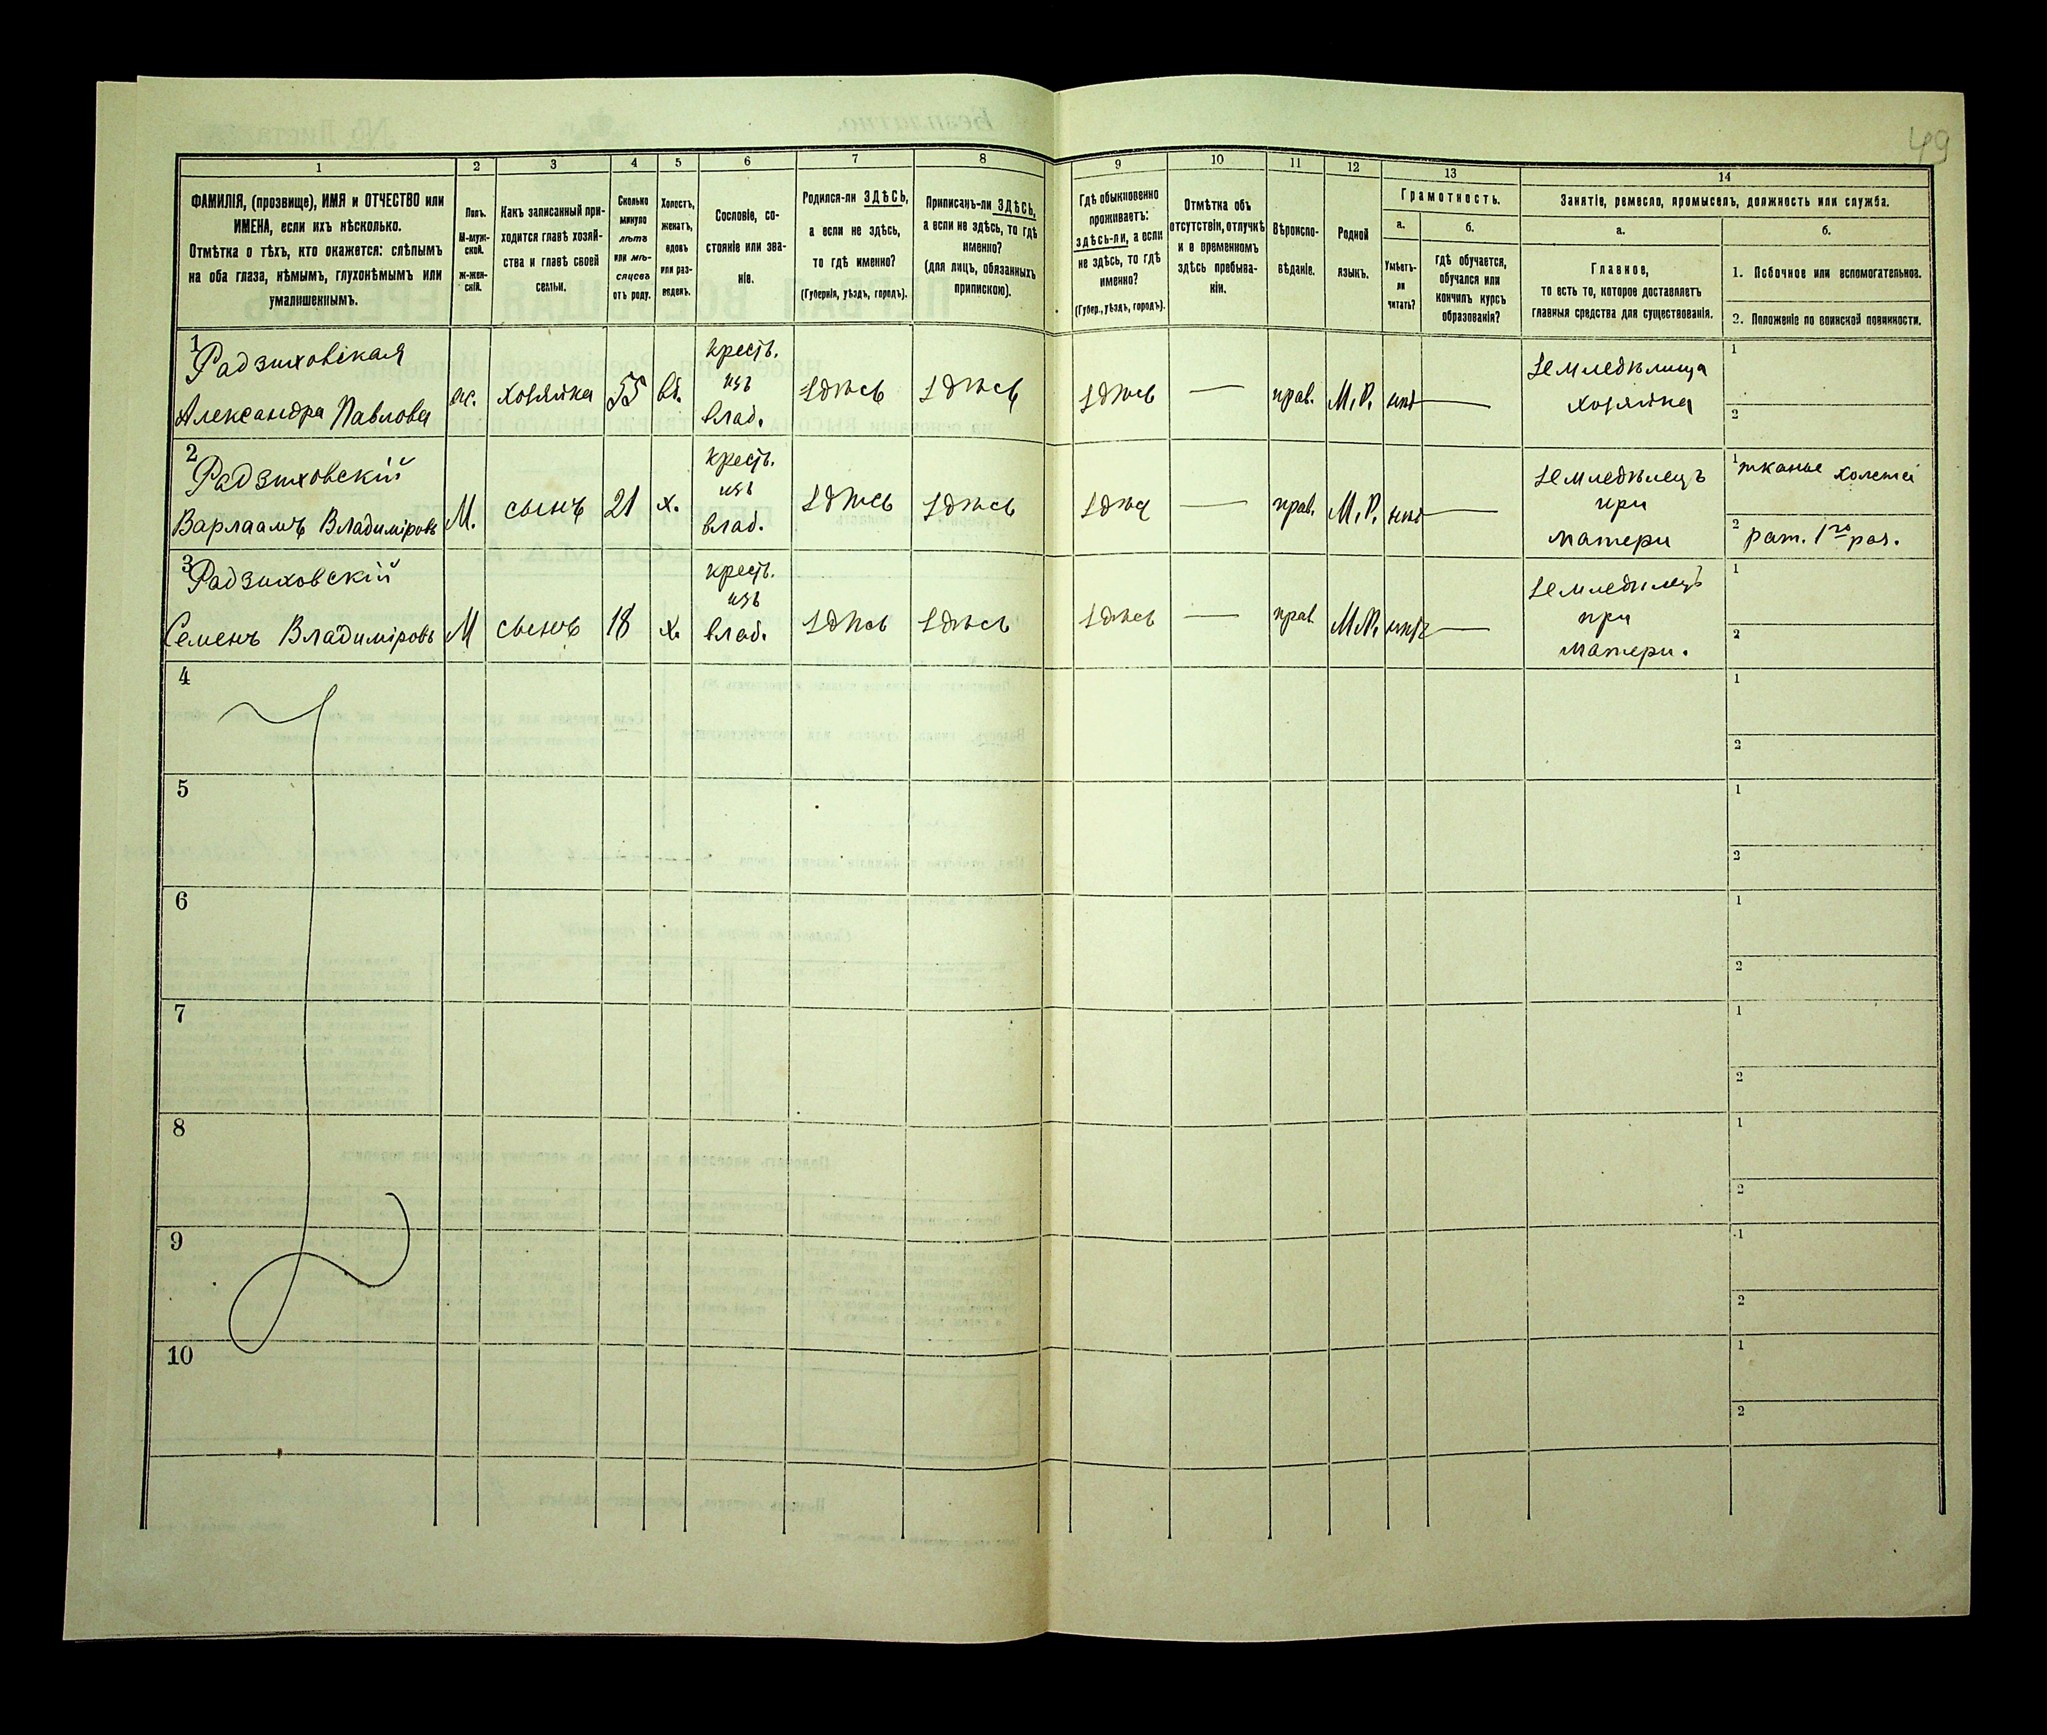 49
1
2
3
4
5
6
7
8
9
10
11
12
13
14
ФАМИЛІЯ, (прозвище), ИМЯ и ОТЧЕСТВО или
ИМЕНА, если ихъ нѣсколько.
Отмѣтка о тѣхъ, кто окажется: слѣпымъ
на оба глаза, нѣмымъ, глухонѣмымъ или
умалишеннымъ.
Полъ.
М-муж-
ской.
ж-жен-
скій.
Какъ записанный при-
ходится главѣ хозяй-
ства и главѣ своей
семьи.
Сколько
минуло
лѣтъ
или мѣ-
сяцевъ
отъ роду.
Холостъ,
женатъ,
вдовъ
или раз-
веденъ.
Сословіе, со-
стояніе или зва-
ніе.
Родился-ли ЗДѢСЬ,
а если не здѣсь,
то гдѣ именно?
(Губернія, уѣздъ, городъ).
Приписанъ-ли ЗДѢСЬ,
а если не здѣсь, то гдѣ
именно?
(для лицъ, обязанныхъ
припискою).
Гдѣ обыкновенно
проживаетъ:
здѣсь-ли, а если
не здѣсь, то гдѣ
именно?
(Губер., уѣздъ, городъ).
Отмѣтка объ
отсутствіи, отлучкѣ
и о временномъ
здѣсь пребыва-
ніи.
Вѣроиспо-
вѣданіе.
Родной
языкъ.
Грамотность.
а.
б.
Умѣетъ-
ли
читать?
гдѣ обучается,
обучался или
кончилъ курсъ
образованія?
Занятіе, ремесло, промыселъ, должность или служба.
а.
б.
Главное,
то есть то, которое доставляетъ
главныя средства для существованія.
1. Побочное или вспомогательное.
2. Положеніе по воинской повинности.
1
Радзиховская
Александра Павлова
ж.
хозяйка
55
вд.
крестъ.
изъ
влад.
здѣсь
здѣсь
здѣсь
—
прав.
М. Р.
нѣтъ
—
Земледѣлица
хозяйка
1
2
2
Радзиховскій
Варлаамъ Владиміровъ
М.
сынъ
21
х.
крестъ.
изъ
влад.
здѣсь
здѣсь
здѣсь
—
прав.
М. Р.
нѣтъ
—
Земледѣлецъ
при
матери
1 тканье холстей
2 рат. 1го раз.
3
Радзиховскій
Семенъ Владиміровъ
М
сынъ
18
х.
крестъ.
изъ
влад.
здѣсь
здѣсь
здѣсь
—
прав
М. Р.
нѣтъ
—
Земледѣлецъ
при
матери.
1
2
4
1
2
5
1
2
6
1
2
7
1
2
8
1
2
9
1
2
10
1
2